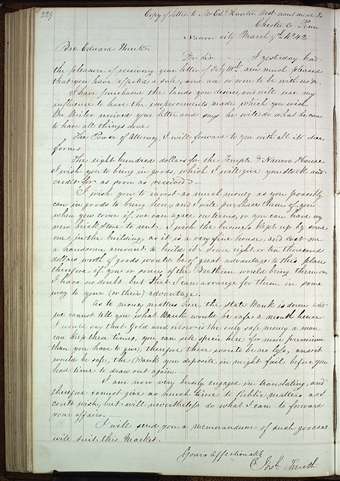 Copy of letter to Mr Edw. Hunter, West
Chester Co Penn
Nauvoo City March 9th 1842
Edward Hunter
Dr Sir I yesterday had
the pleasure of receiving your letter of Feby 10th am much pleased
that you have effected a sale, and are so soon to be with us
I have purchased the lands you desired, and will use my
influence to have the improvements made, which you wish
Br Weiler received your letter and says he will do what he can
to have all things done
The Power of Attorney I will forward to you with all its due
forms
The eight hundred dollars for the Temple & Nauvoo House
I wish you to bring in goods, which I will give you stock and
credit for as soon as received
I wish you to invest as much money as you possibly
can in goods to bring here, and I will purchase them of you
when you come, if we can agree on terms, or you can have my
new brick store to rent. I wish the business kept up by some
one in the building, as it is a very fine house, and cost me
a handsome amount to build it; some eight or ten thousand
dollars worth of goods would be of great advantage to this place
therefore, if you or some of the Brethren would bring them on
I have no doubt but that I can arrange for them in some
way to your (or their) advantage.
As to money matters here, the State Bank is down and
we cannot tell you what Bank would be safe a month hence
I would say that Gold and silver is the only safe money a man
can keep these times, you can sell specie here for more premium
than you have to give, therefore there would be no loss, and it
would be safe, the Bank you deposit in might fail before you
had time to draw out again.
I am now very busily engaged in translating, and
therefore cannot give as much time to Public matters as I
could wish, but will nevertheless do what I can to forward
your affairs.
I will send you a memorandum of such goods as
will suit this Market.
Yours affectionately
Smith